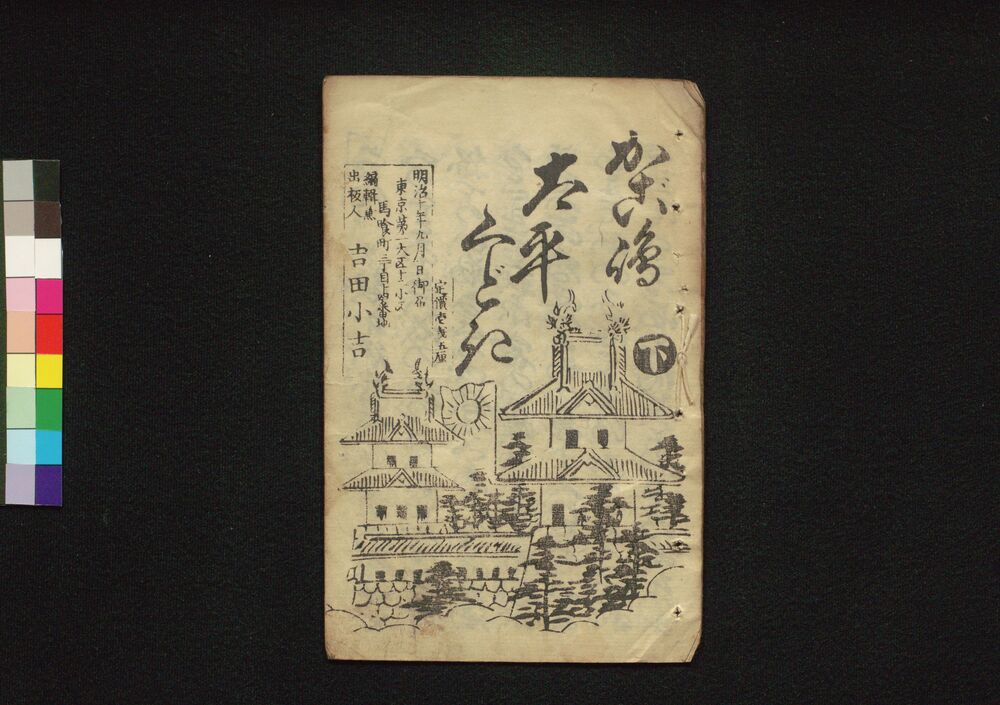 かごい嶋
太平
くどき
下
定價壱銭五厘
明治十年九月 日御届
東京第一大区十二小区
馬喰町三丁目十四番地
編輯兼
出板人
吉田小吉